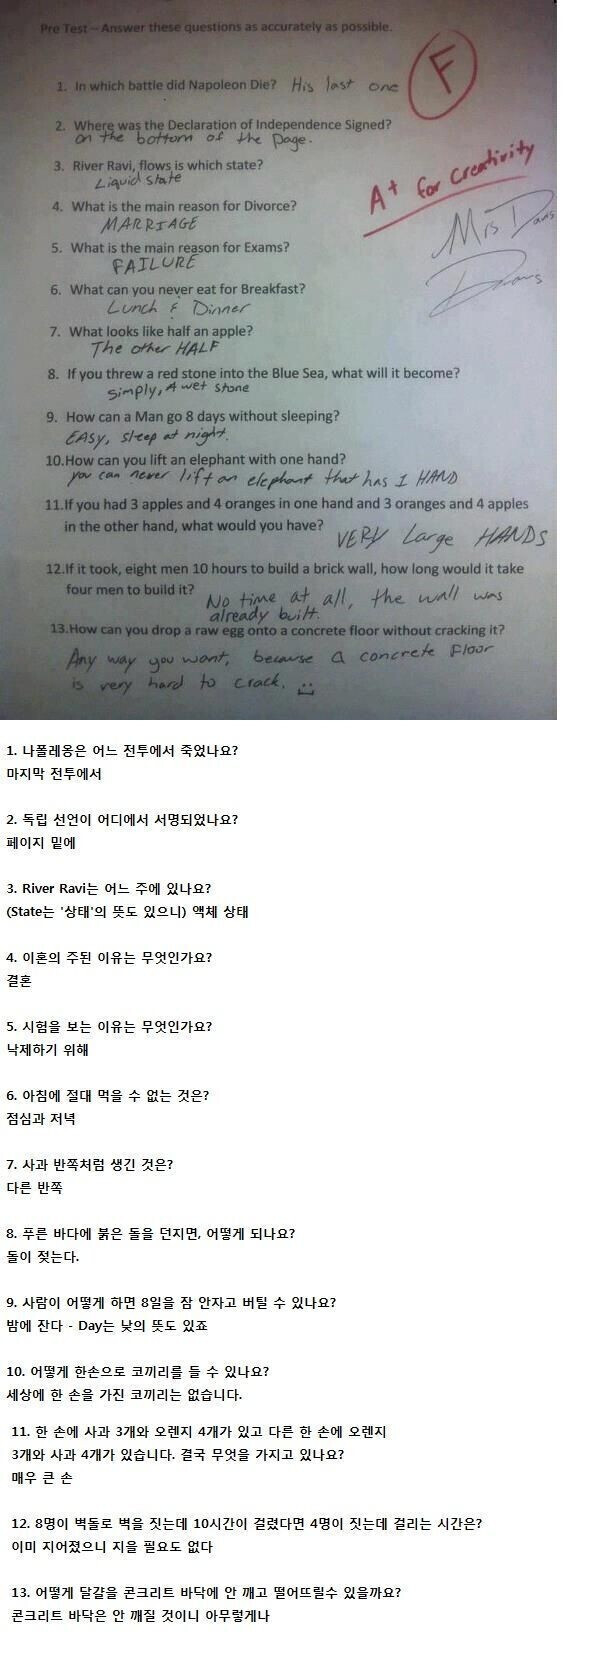 Pre Test – Answer these questions as accurately as possible.
F
1. In which battle did Napoleon Die? His last one
2. Where was the Declaration of Independence Signed?
on the bottom of the page.
A+ for Creativity
3. River Ravi, flows is which state?
Liquid state
4. What is the main reason for Divorce?
MARRIAGE
Mrs Davis
5. What is the main reason for Exams?
FAILURE
6. What can you never eat for Breakfast?
Lunch & Dinner
7. What looks like half an apple?
The other HALF
8. If you threw a red stone into the Blue Sea, what will it become?
simply, A wet stone
9. How can a Man go 8 days without sleeping?
EASY, sleep at night.
10.How can you lift an elephant with one hand?
you can never lift an elephant that has 1 HAND
11.If you had 3 apples and 4 oranges in one hand and 3 oranges and 4 apples
in the other hand, what would you have? VERY Large HANDS
12.If it took, eight men 10 hours to build a brick wall, how long would it take
four men to build it? No time at all, the wall was
already built.
13.How can you drop a raw egg onto a concrete floor without cracking it?
Any way you want, because a concrete floor
is very hard to crack.
1. 나폴레옹은 어느 전투에서 죽었나요?
마지막 전투에서
2. 독립 선언이 어디에서 서명되었나요?
페이지 밑에
3. River Ravi는 어느 주에 있나요?
(State는 '상태'의 뜻도 있으니) 액체 상태
4. 이혼의 주된 이유는 무엇인가요?
결혼
5. 시험을 보는 이유는 무엇인가요?
낙제하기 위해
6. 아침에 절대 먹을 수 없는 것은?
점심과 저녁
7. 사과 반쪽처럼 생긴 것은?
다른 반쪽
8. 푸른 바다에 붉은 돌을 던지면, 어떻게 되나요?
돌이 젖는다.
9. 사람이 어떻게 하면 8일을 잠 안자고 버틸 수 있나요?
밤에 잔다 - Day는 낮의 뜻도 있죠
10. 어떻게 한손으로 코끼리를 들 수 있나요?
세상에 한 손을 가진 코끼리는 없습니다.
11. 한 손에 사과 3개와 오렌지 4개가 있고 다른 한 손에 오렌지
3개와 사과 4개가 있습니다. 결국 무엇을 가지고 있나요?
매우 큰 손
12. 8명이 벽돌로 벽을 짓는데 10시간이 걸렸다면 4명이 짓는데 걸리는 시간은?
이미 지어졌으니 지을 필요도 없다
13. 어떻게 달걀을 콘크리트 바닥에 안 깨고 떨어뜨릴수 있을까요?
콘크리트 바닥은 안 깨질 것이니 아무렇게나